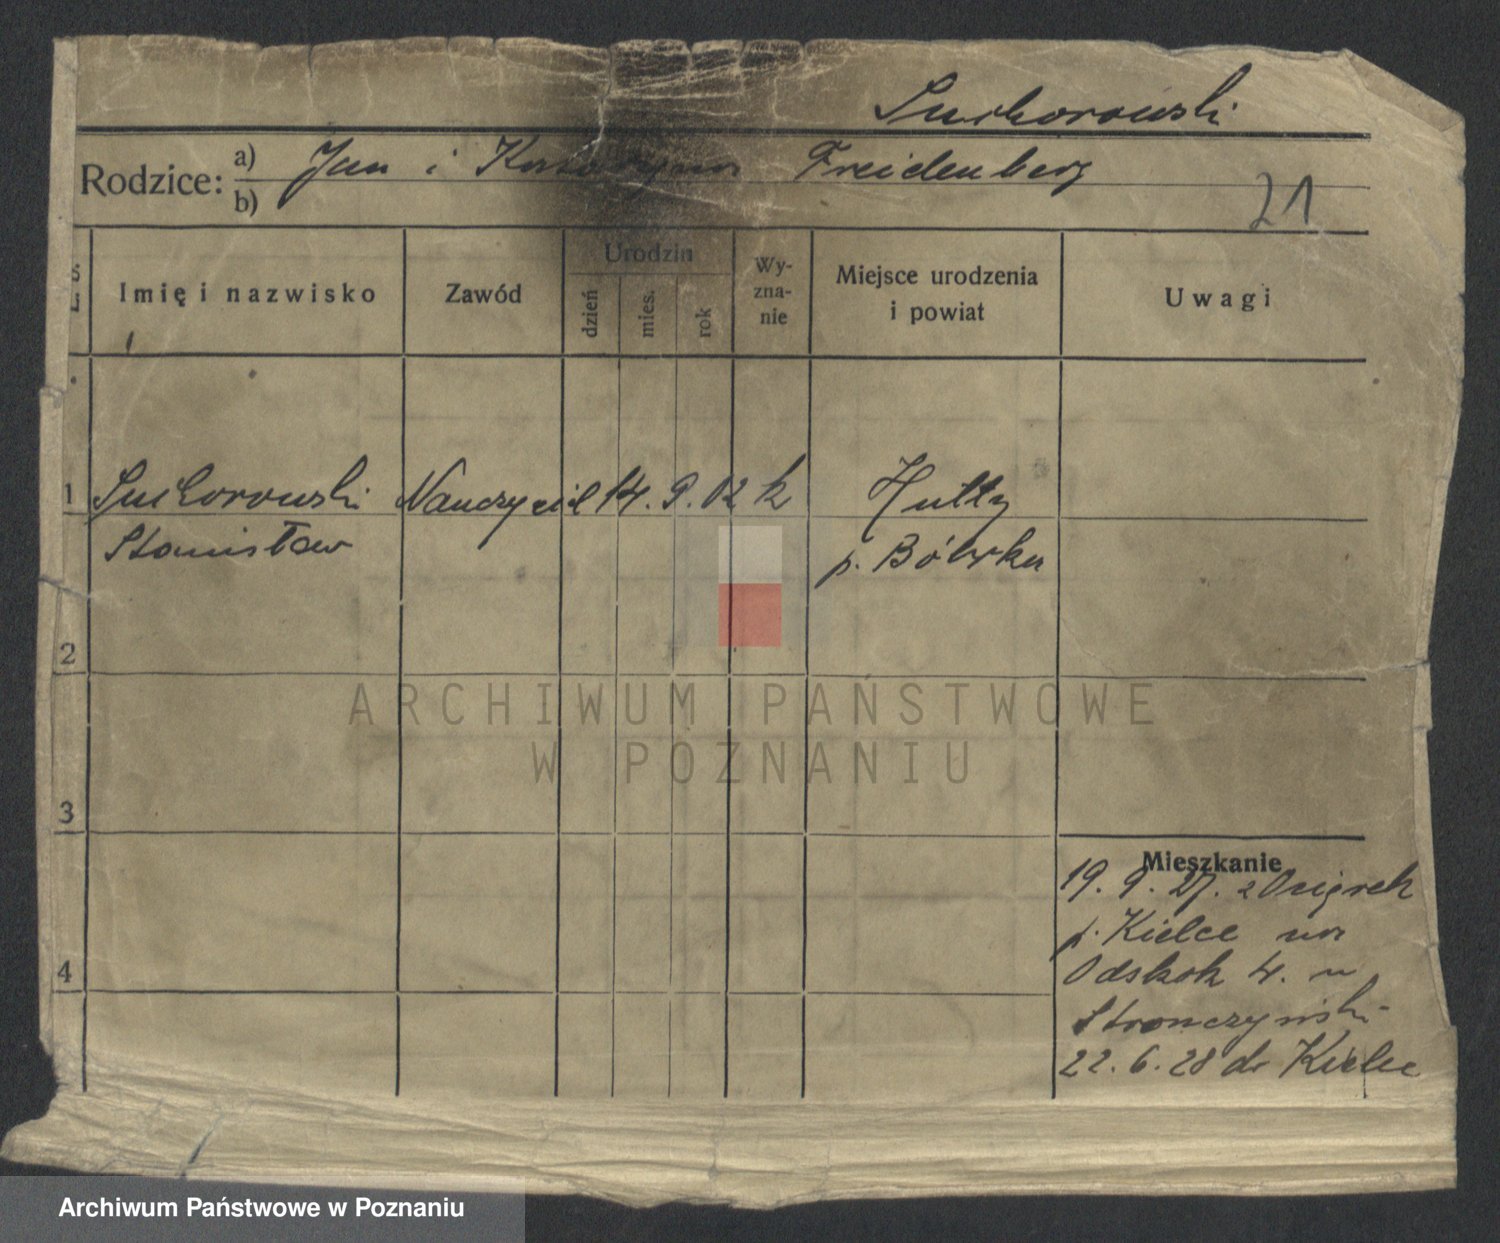 Suchorowski
Rodzice: a) Jan i Katarzyna Freidenberg
b)
21
Imię i nazwisko
Zawód
Urodzin
dzień
mies.
rok
Wy-
zna-
nie
Miejsce urodzenia
i powiat
Uwagi
1 Suchorowski Nauczyciel 14. 9. 02 k Hutty
Stanisław p. Bóbrka
2
3
4
Mieszkanie
19. 9. 27. z
p. Kielce na
Odskok 4. u
22. 6. 28 do Kielc
ARCHIWUM PAŃSTWOWE
W POZNANIU
Archiwum Państwowe w Poznaniu